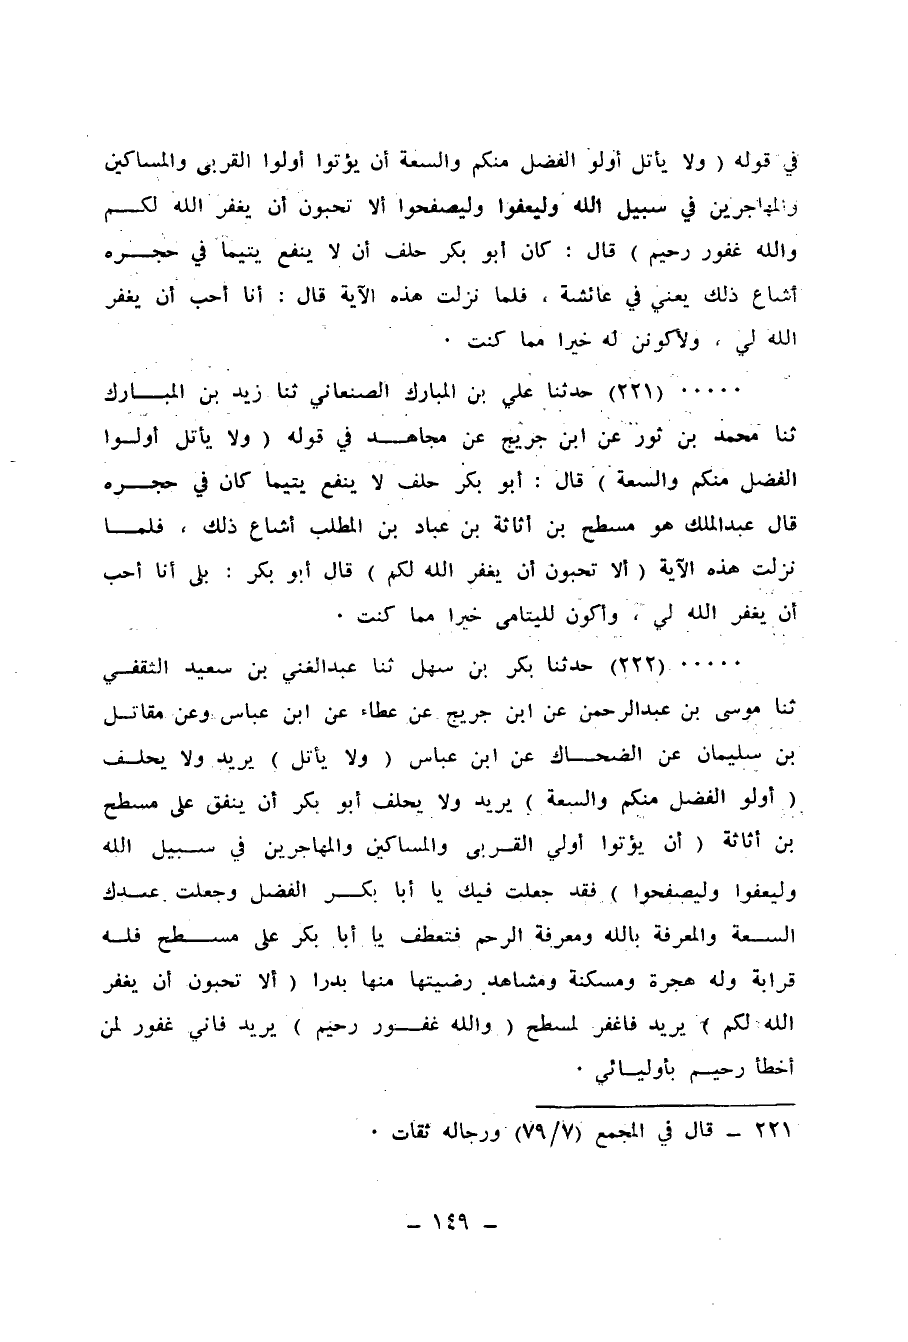 في قوله ( ولا يأتل أولو الفضل منكم والسعة أن يؤتوا أولوا القربى والمساكين
والمهاجرين في سبيل الله وليعفوا وليصفحوا ألا تحبون أن يغفر الله لكم
والله غفور رحيم ) قال : كان أبو بكر حلف أن لا ينفع يتيما في حجره
أشاع ذلك يعني في عائشة ، فلما نزلت هذه الآية قال : أنا أحب أن يغفر
الله لي ، ولأكونن له خيرا مما كنت ٠
٠٠٠٠٠ (٢٢١) حدثنا علي بن المبارك الصنعاني ثنا زيد بن المبارك
ثنا محمد بن ثور عن ابن جريج عن مجاهد في قوله ( ولا يأتل أولوا
الفضل منكم والسعة ) قال : أبو بكر حلف لا ينفع يتيما كان في حجره
قال عبدالملك هو مسطح بن أثاثة بن عباد بن المطلب أشاع ذلك ، فلما
نزلت هذه الآية ( ألا تحبون أن يغفر الله لكم ) قال أبو بكر : بلى أنا أحب
أن يغفر الله لي ، وأكون لليتامى خيرا مما كنت ٠
٠٠٠٠٠ (٢٢٢) حدثنا بكر بن سهل ثنا عبدالغني بن سعيد الثقفي
ثنا موسى بن عبدالرحمن عن ابن جريج عن عطاء عن ابن عباس وعن مقاتل
بن سليمان عن الضحاك عن ابن عباس ( ولا يأتل ) يريد ولا يحلف
( أولو الفضل منكم والسعة ) يريد ولا يحلف أبو بكر أن ينفق على مسطح
بن أثاثة ( أن يؤتوا أولي القربى والمساكين والمهاجرين في سبيل الله
وليعفوا وليصفحوا ) فقد جعلت فيك يا أبا بكر الفضل وجعلت عندك
السعة والمعرفة بالله ومعرفة الرحم فتعطف يا أبا بكر على مسطح فله
قرابة وله هجرة ومسكنة ومشاهد رضيتها منها بدرا ( ألا تحبون أن يغفر
الله لكم ) يريد فاغفر لمسطح ( والله غفور رحيم ) يريد فاني غفور لمن
أخطأ رحيم بأوليائي ٠
٢٢١ – قال في المجمع (٧٩/٧) ورجاله ثقات ٠
– ١٤٩ –